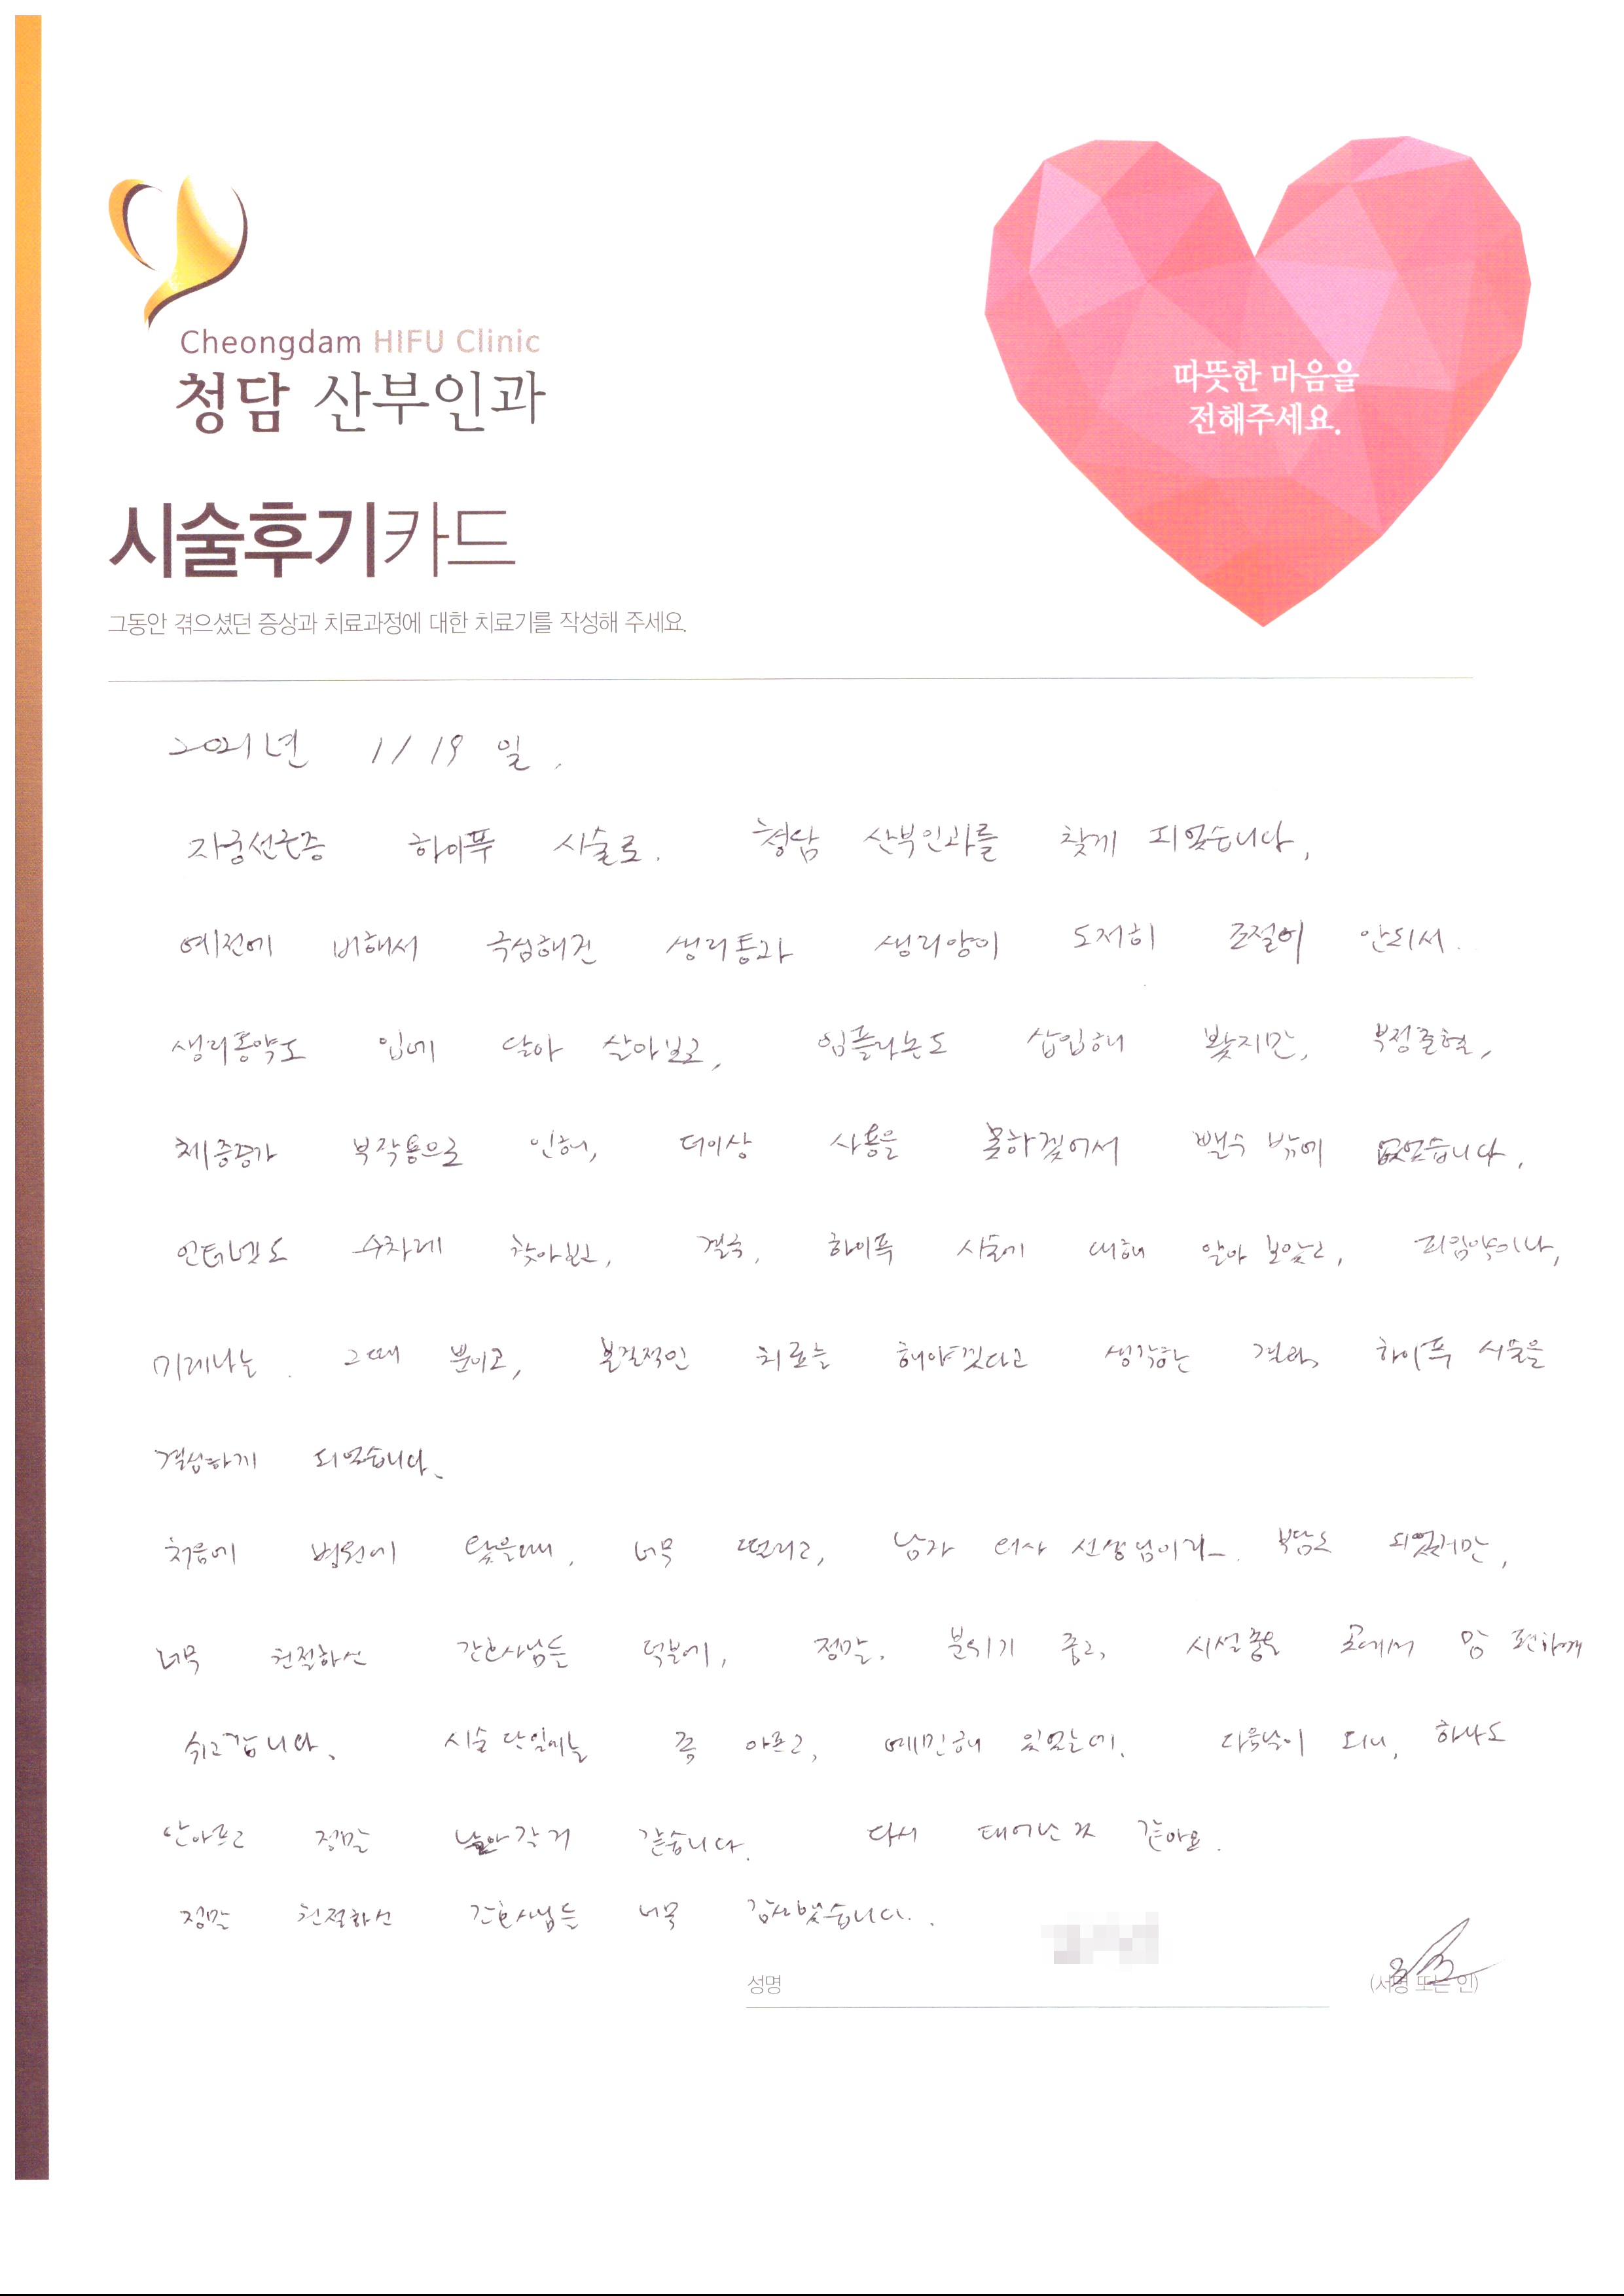 Cheongdam HIFU Clinic
청담 산부인과
따뜻한 마음을
전해주세요.
시술후기카드
그동안 겪으셨던 증상과 치료과정에 대한 치료기를 작성해 주세요.
2021년 1/19일.
자궁선근증 하이푸 시술로. 청담 산부인과를 찾게 되었습니다,
예전에 비해서 극심해진 생리통과 생리양이 도저히 조절이 안되서..
생리통약도 입에 달아 살아보고, 임플라논도 삽입해 봤지만, 부정출혈,
체중증가 부작용으로 인해, 더이상 사용을 못하겠어서 뺄수 밖에 없었습니다,
인터넷도 수차례 찾아보고, 결국, 하이푸 시술에 대해 알아 보았고, 피임약이나,
미레나는. 그때 뿐이고, 본질적인 치료를 해야겠다고 생각한 결과, 하이푹 시술을
결심하게 되었습니다.
처음에 병원에 왔을때, 너무 떨리고, 남자 의사 선생님이라_. 부담도 되었지만,
너무 친절하신 간호사님들 덕분에, 정말. 분위기 좋고, 시설좋은 곳에서 맘 편하게
쉬고갑니다. 시술 당일에는 좀 아프고, 예민해 있었는데. 다음날이 되니, 하나도
안아프고 정말 날아갈거 같습니다. 다시 태어난것 같아요.
정말 친절하신 간호사님들 너무 감사했습니다..
성명
(서명 또는 인)